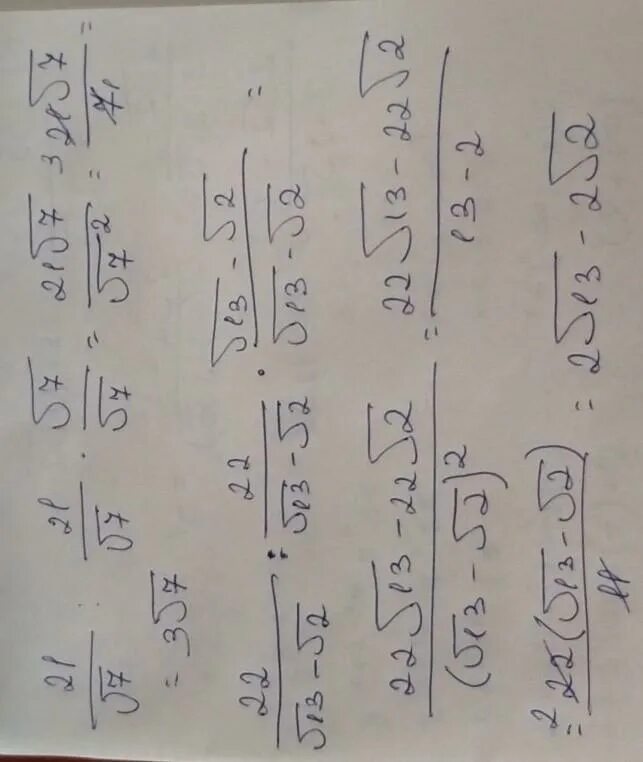 21/√7 : 21/√7 · √7/√7 = 21√7/√7² = ³21√7/7₁ =
= 3√7
22/(√13-√2) : 22/(√13-√2) · (√13-√2)/(√13-√2) =
(22√13-22√2)/(√13-√2)² = (22√13-22√2)/(13-2)
= ²22(√13-√2)/11 = 2√13-2√2